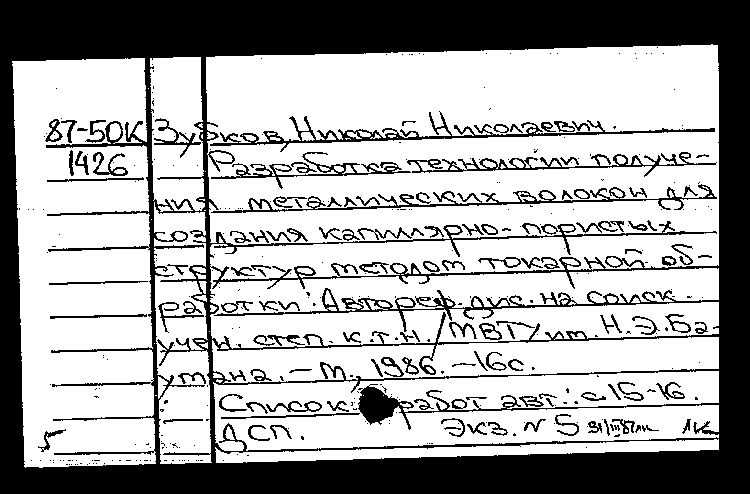 87-50К Зубков, Николай Николаевич.
1426 Разработка технологии получе-
ния металлических волокон для
создания капилярно-пористых
структур методом токарной об-
работки: Автореф. дис. на соиск.
учен. степ. к.т.н. / МВТУ им. Н.Э.Ба-
умана. - М., 1986. - 16с.
Список работ авт.: с 15-16.
5 ДСП. Экз. N 5